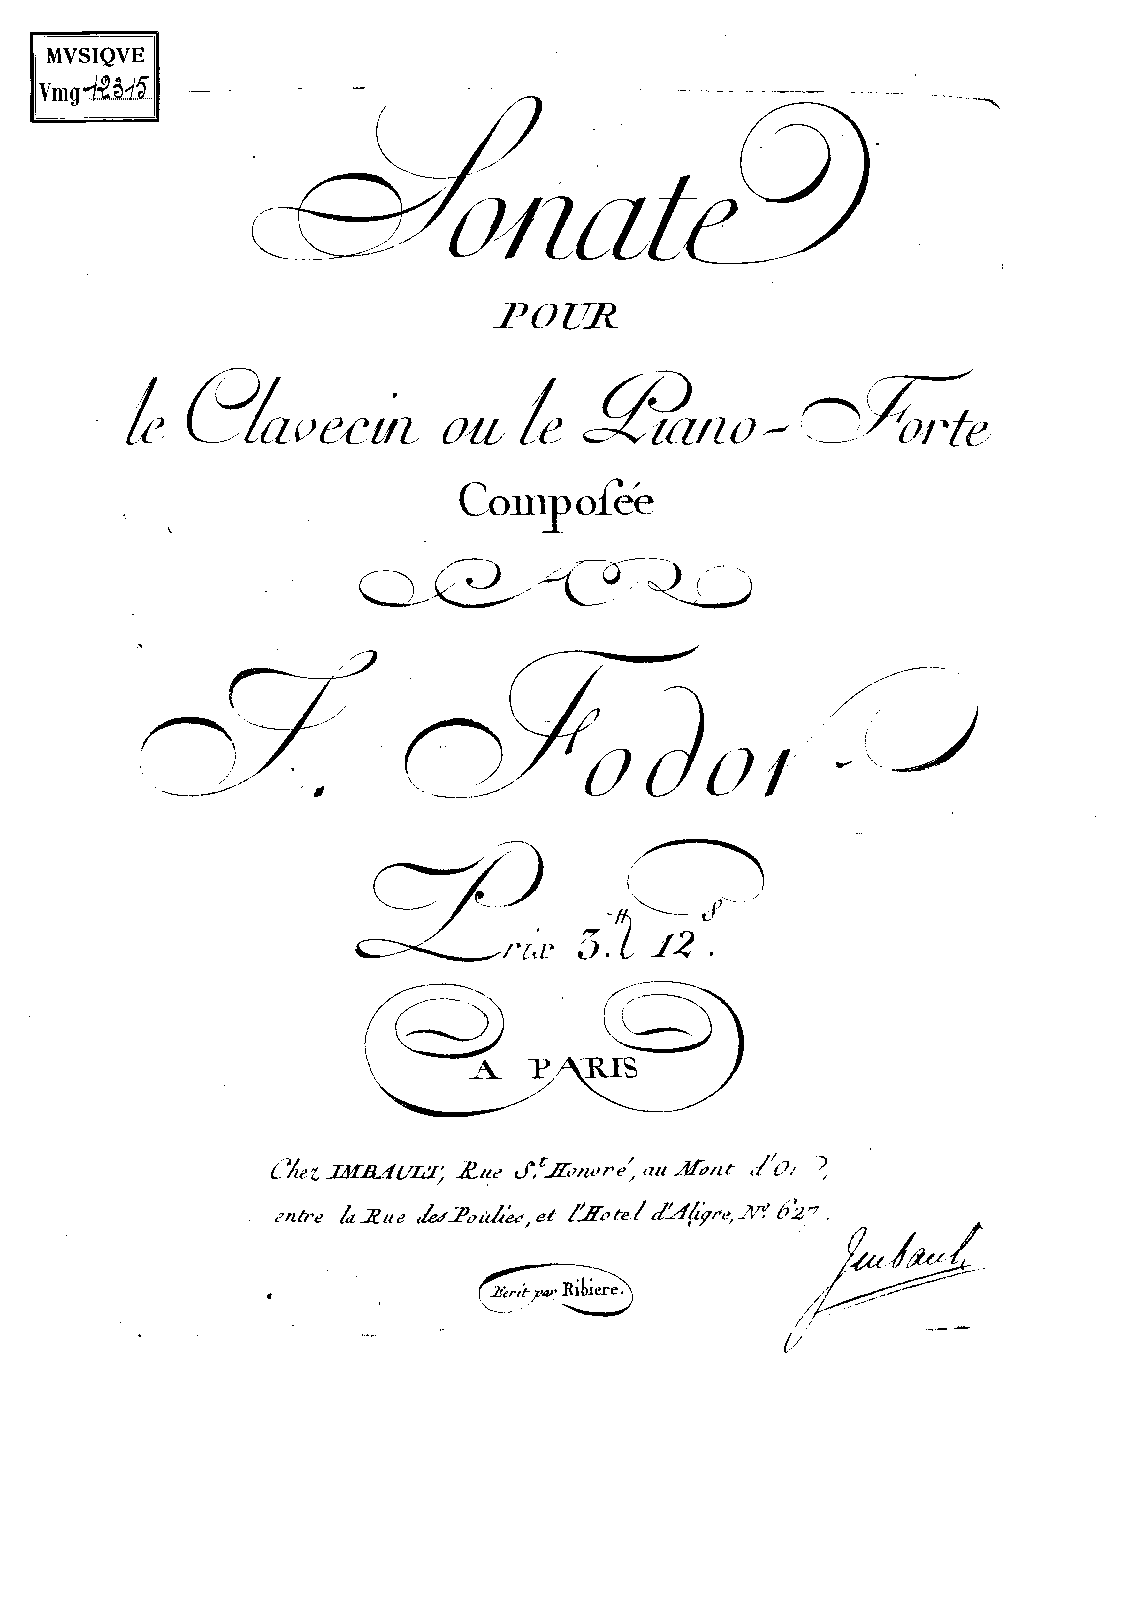 MVSIQVE
Vmg 12315
Sonate
POUR
le Clavecin ou le Piano-Forte
Composée
F. Fodor
Prix 3.tt 12.s
A PARIS
Chez IMBAULT, Rue St. Honoré, au Mont d'Or,
entre la Rue des Poulies, et l'Hotel d'Aligre, No. 627.
Ecrit par Ribiere.
Imbault